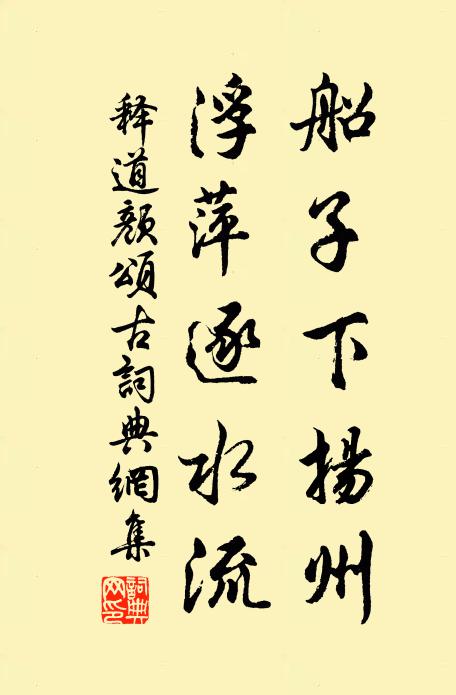 船子下揚州
浮萍逐水流
释道顏頌古詞典網集
詞典網印